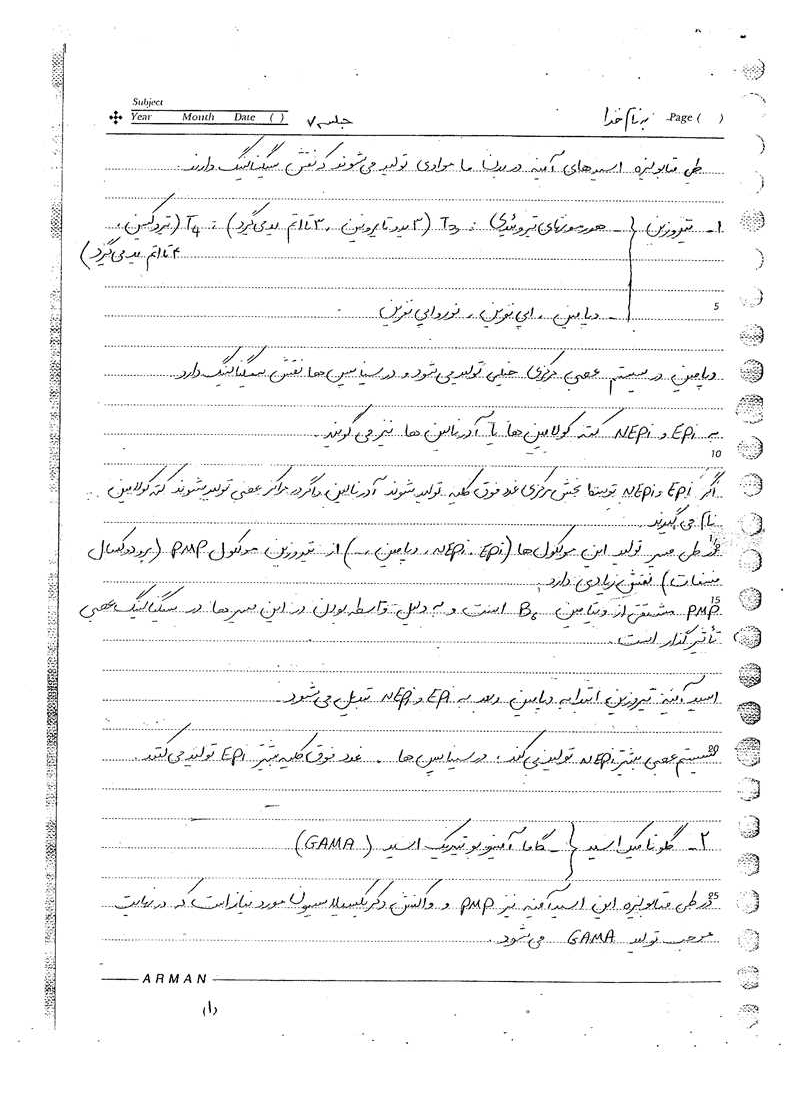 Subject
Year Month Date ( ) جلسه ۷ به نام خدا Page ( )
طی متابولیزه اسیدهای آمینه در بدن ما موادی تولید می‌شوند که نقش سیگنالینگ دارند.
۱- تیروزین } - هورمونهای تیروئیدی : T3 (۳ یدوتایرونین ، ۳ تا اتم ید می‌گیرد) : T4 (تیروکسین ،
۴ تا اتم ید می‌گیرد)
5
- دپامین ، اپی نفرین ، نوراپی نفرین
دپامین در سیستم عصبی مرکزی خیلی تولید می‌شود و در سیناپس ها نقش سیگنالینگ دارد.
به EPi و NEPi کته کولامین ها یا آدرنالین ها نیز می گویند.
10
اگر EPi و NEPi توسط بخش مرکزی غدد فوق کلیه تولید شوند آدرنالین و اگر در مراکز عصبی تولید شوند کته کولامین
نام می گیرند.
در طی مسیر تولید این مولکول ها (EPi ، NEPi ، دپامین ، ...) از تیروزین مولکول PMP (پریدوکسال
فسفات) نقش زیادی دارد.
15
PMP مشتق از ویتامین B6 است و به دلیل واسطه بودن در این مسیرها در سیگنالینگ عصبی
تأثیر گذار است.
اسید آمینه تیروزین ابتدا به دپامین و بعد به EPi و NEPi تبدیل می‌شود.
20
سیستم عصبی بیشتر NEPi تولید می کند ، در سیناپس ها . غدد فوق کلیه بیشتر EPi تولید می کنند.
۲- گلوتامیک اسید } - گاما آمینو بوتیریک اسید (GAMA)
25
در طی متابولیزه این اسید آمینه نیز PMP و واکنش دکربکسیلاسیون مورد نیاز است که در نهایت
موجب تولید GAMA می‌شود.
ARMAN
(۱)